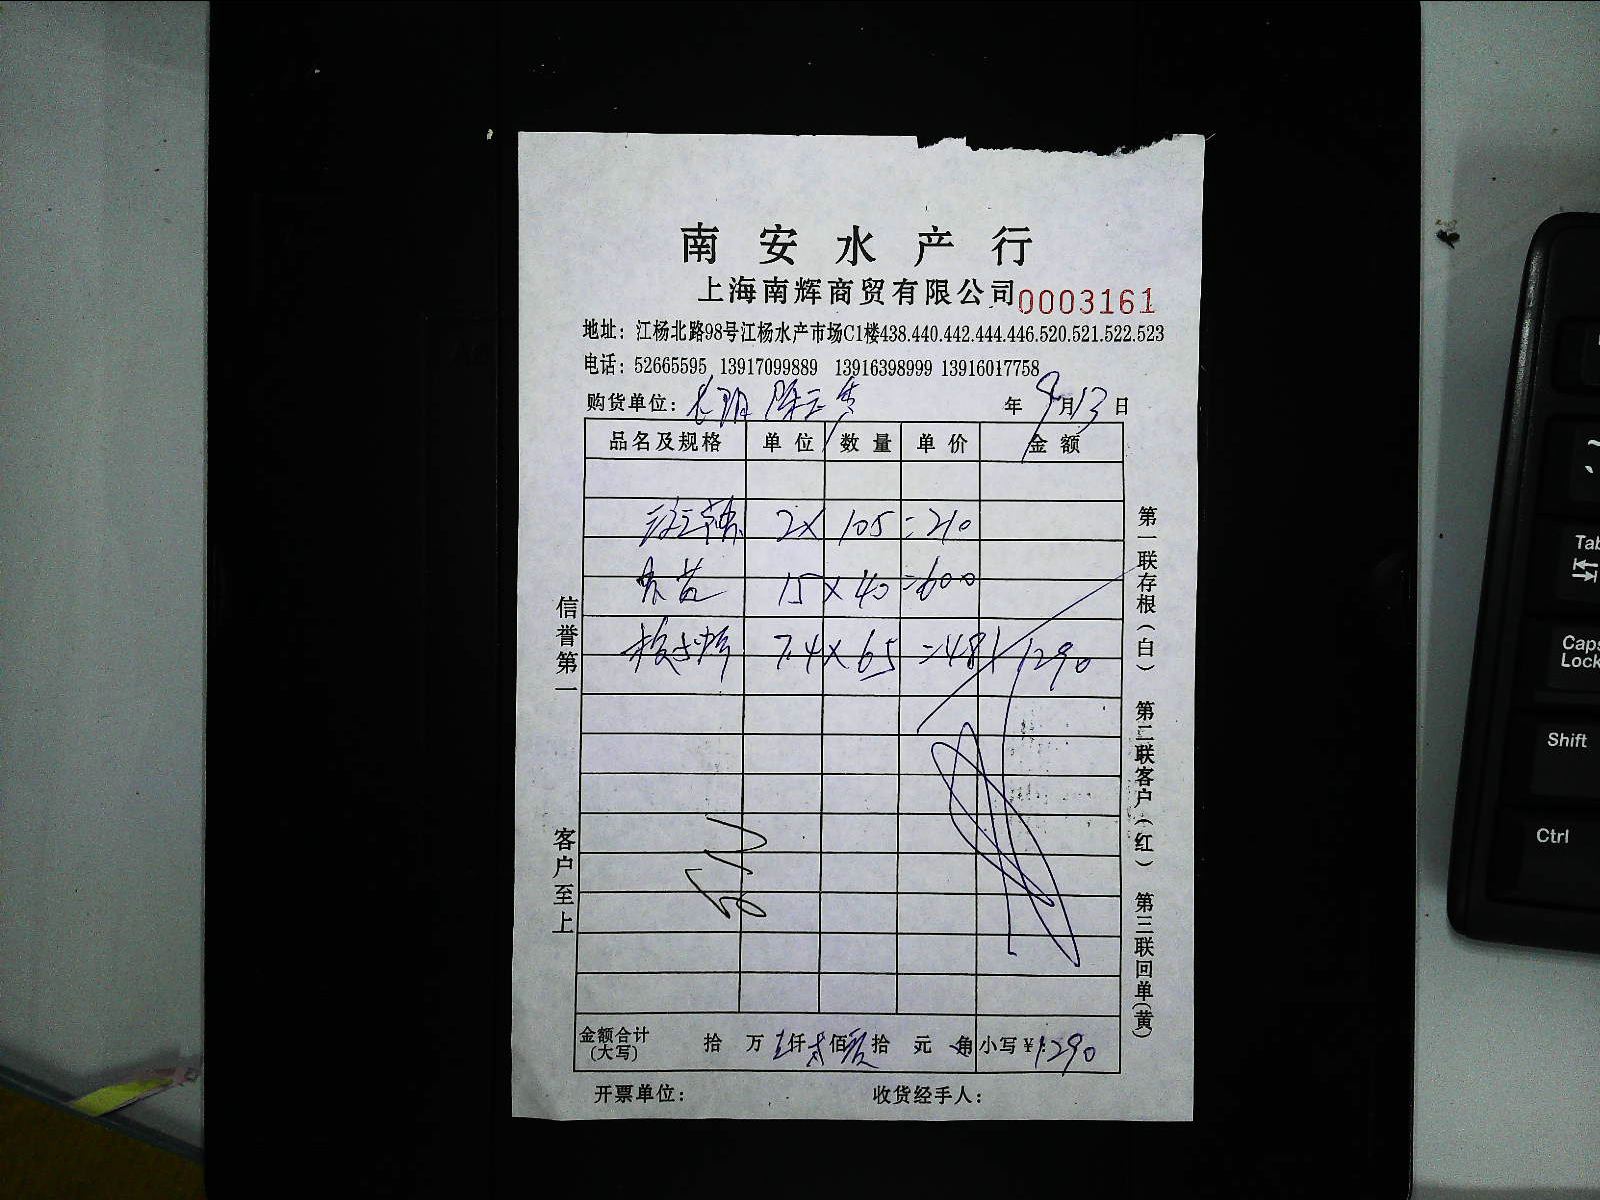 南安水产行
上海南辉商贸有限公司 0003161
地址：江杨北路98号江杨水产市场C1楼438.440.442.444.446.520.521.522.523
电话：52665595 13917099889 13916398999 13916017758
购货单位： 年 9月13日
品名及规格 单位 数量 单价 金额
2 x 105 = 210
15 x 40 = 600
7.4 x 65 = 481 1290
金额合计(大写) 拾 万 壹仟贰佰玖拾 元 角 小写¥:1290
开票单位： 收货经手人：
信誉第一 客户至上
第一联存根(白) 第二联客户(红) 第三联回单(黄)
Tab
Caps Lock
Shift
Ctrl